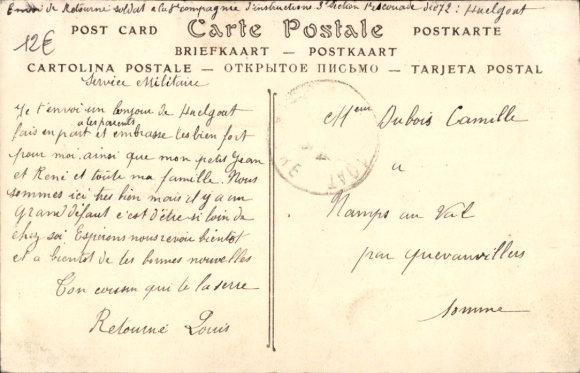 Envoi de Retourné soldat a la 8e compagnie d'instructions 3e Section 1e escouade dt 72e : Huelgoat
12€
Carte Postale
POST CARD
POSTKARTE
BRIEFKAART - POSTKAART
CARTOLINA POSTALE - ОТКРЫТОЕ ПИСЬМО - TARJETA POSTAL
Service Militaire
Je t'envoi un bonjour de Huelgoat
fais en part a tes parents et embrasse les bien fort
pour moi, ainsi que mon petit Jean
et René et toute ma famille. Nous
sommes ici tres bien mais il y a un
Grand défaut c'est d'être si loin de
chez soi Espérons nous revoir bientot
et a bientot de tes bonnes nouvelles
Ton cousin qui te la serre
Retourné Louis
Dubois Camille
a
Namps au Val
par Quevauvillers
Somme